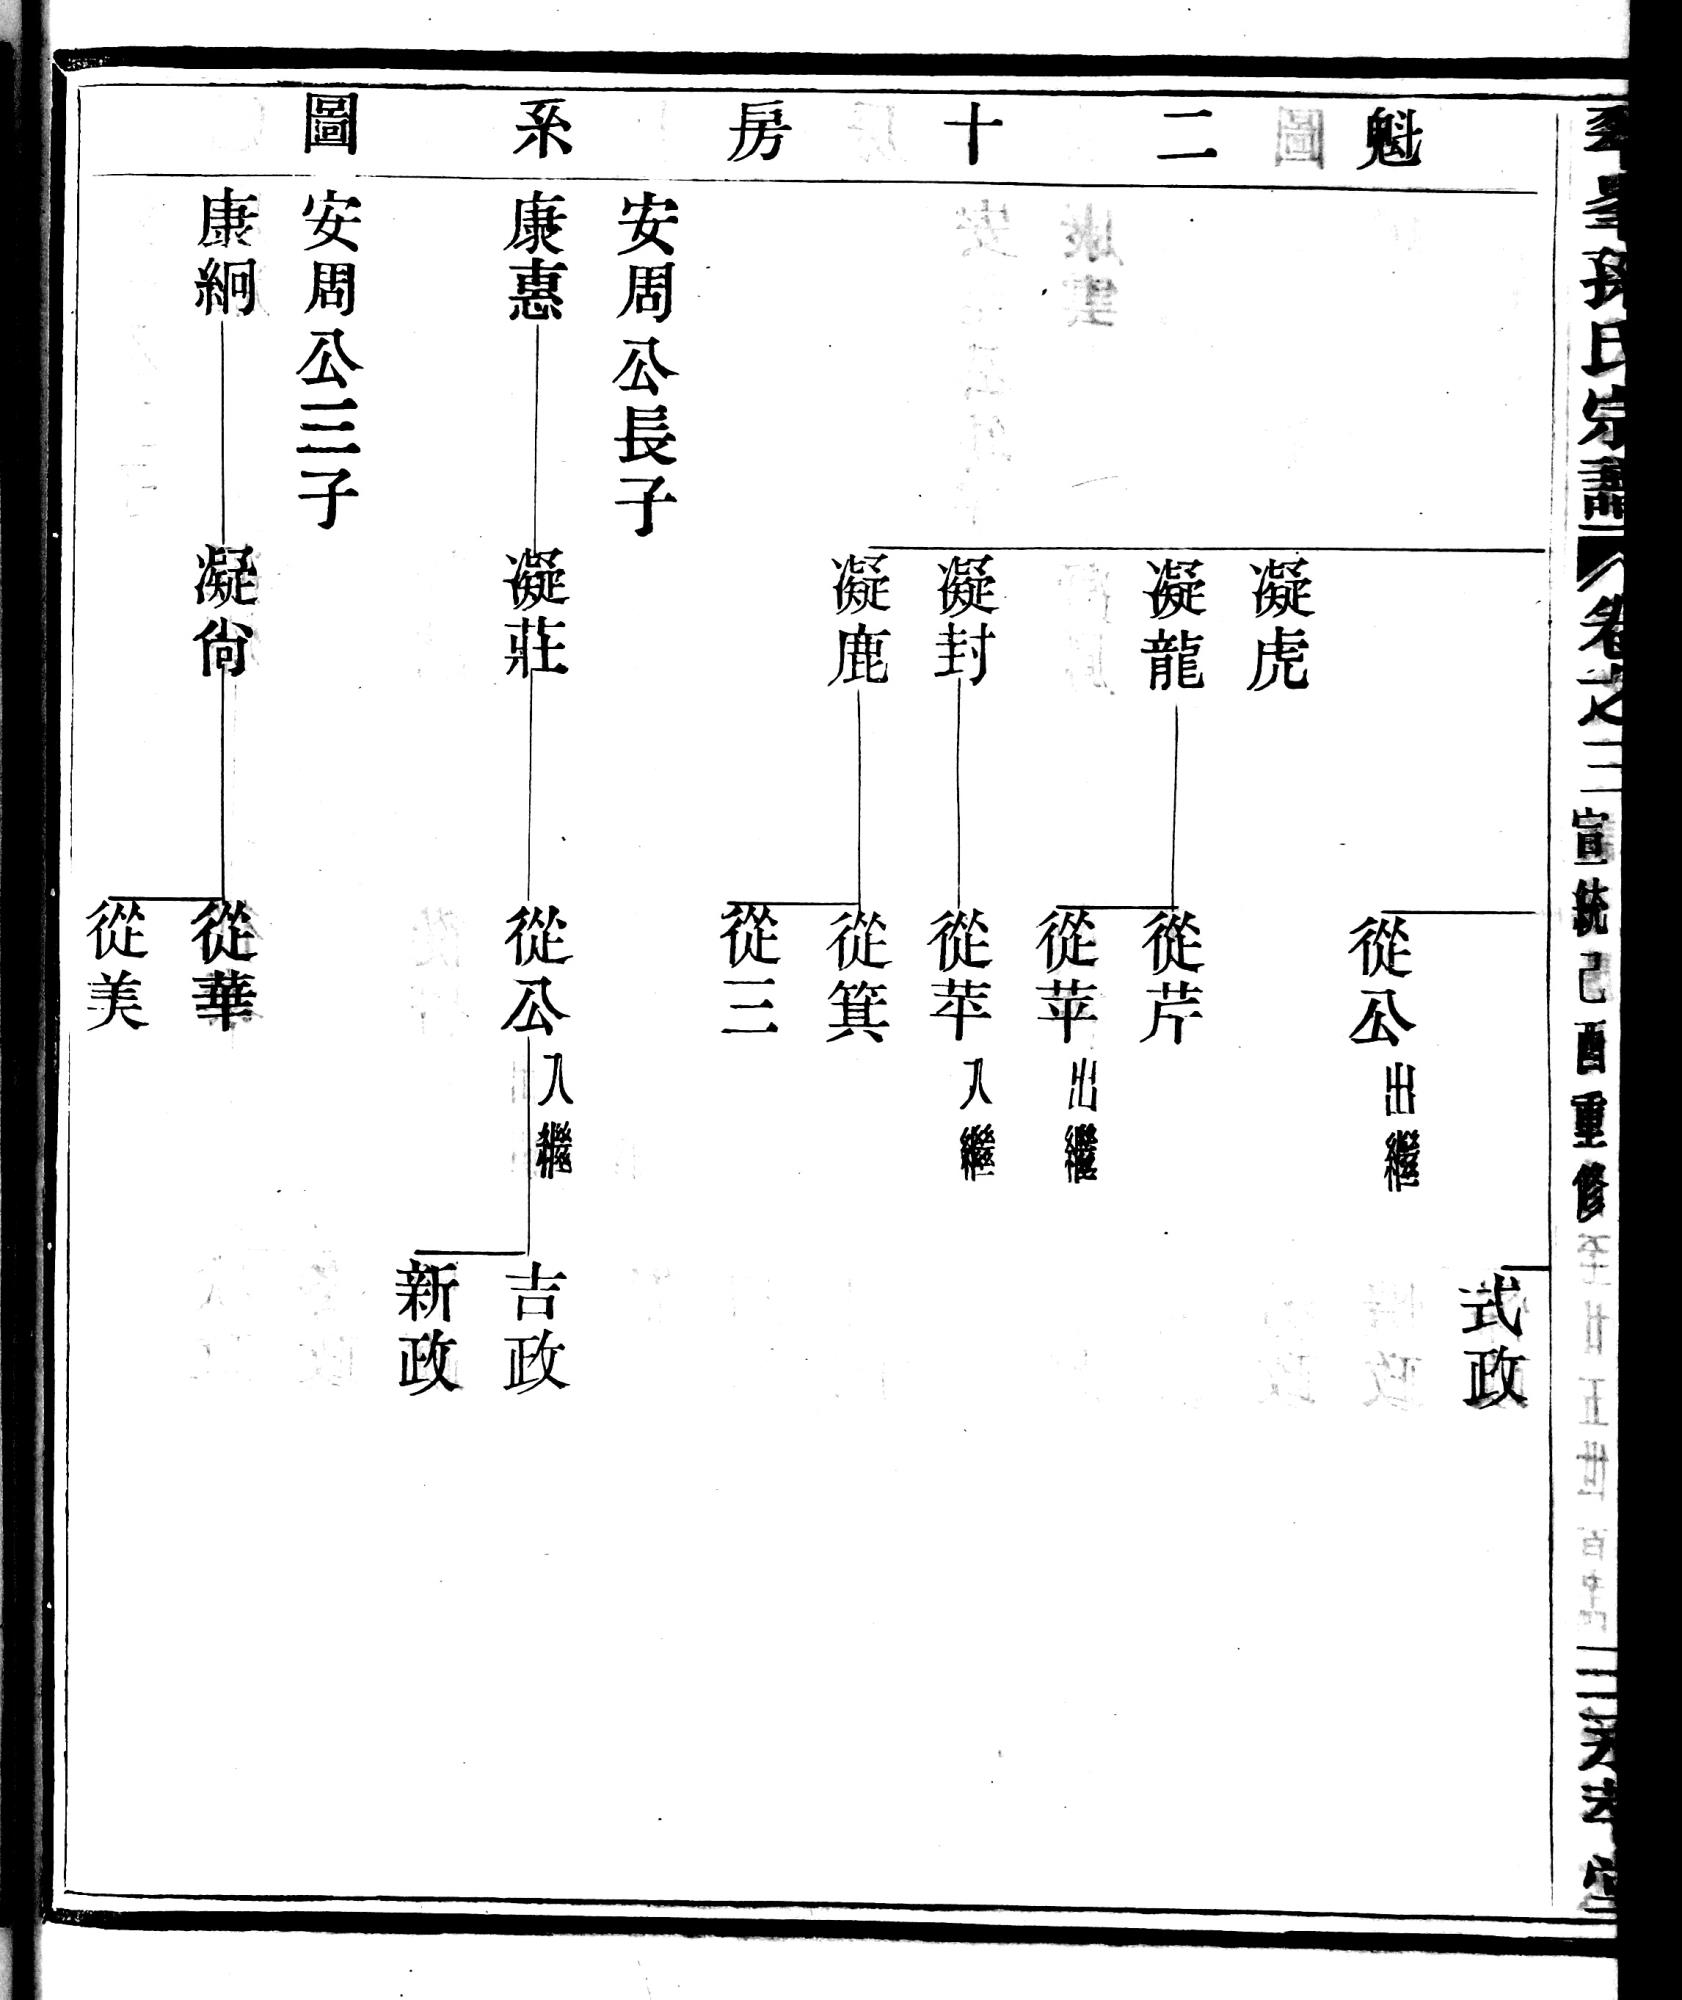 魁二十房系圖
式政
從公出繼
凝虎
凝龍
從芹
從苹出繼
凝封
從苹入繼
凝鹿
從箕
從三
安周公長子
康惠
凝莊
從公入繼
吉政
新政
安周公三子
康絅
凝尙
從華
從美
孫氏宗譜
卷之三
宣統己酉重修
至廿五世